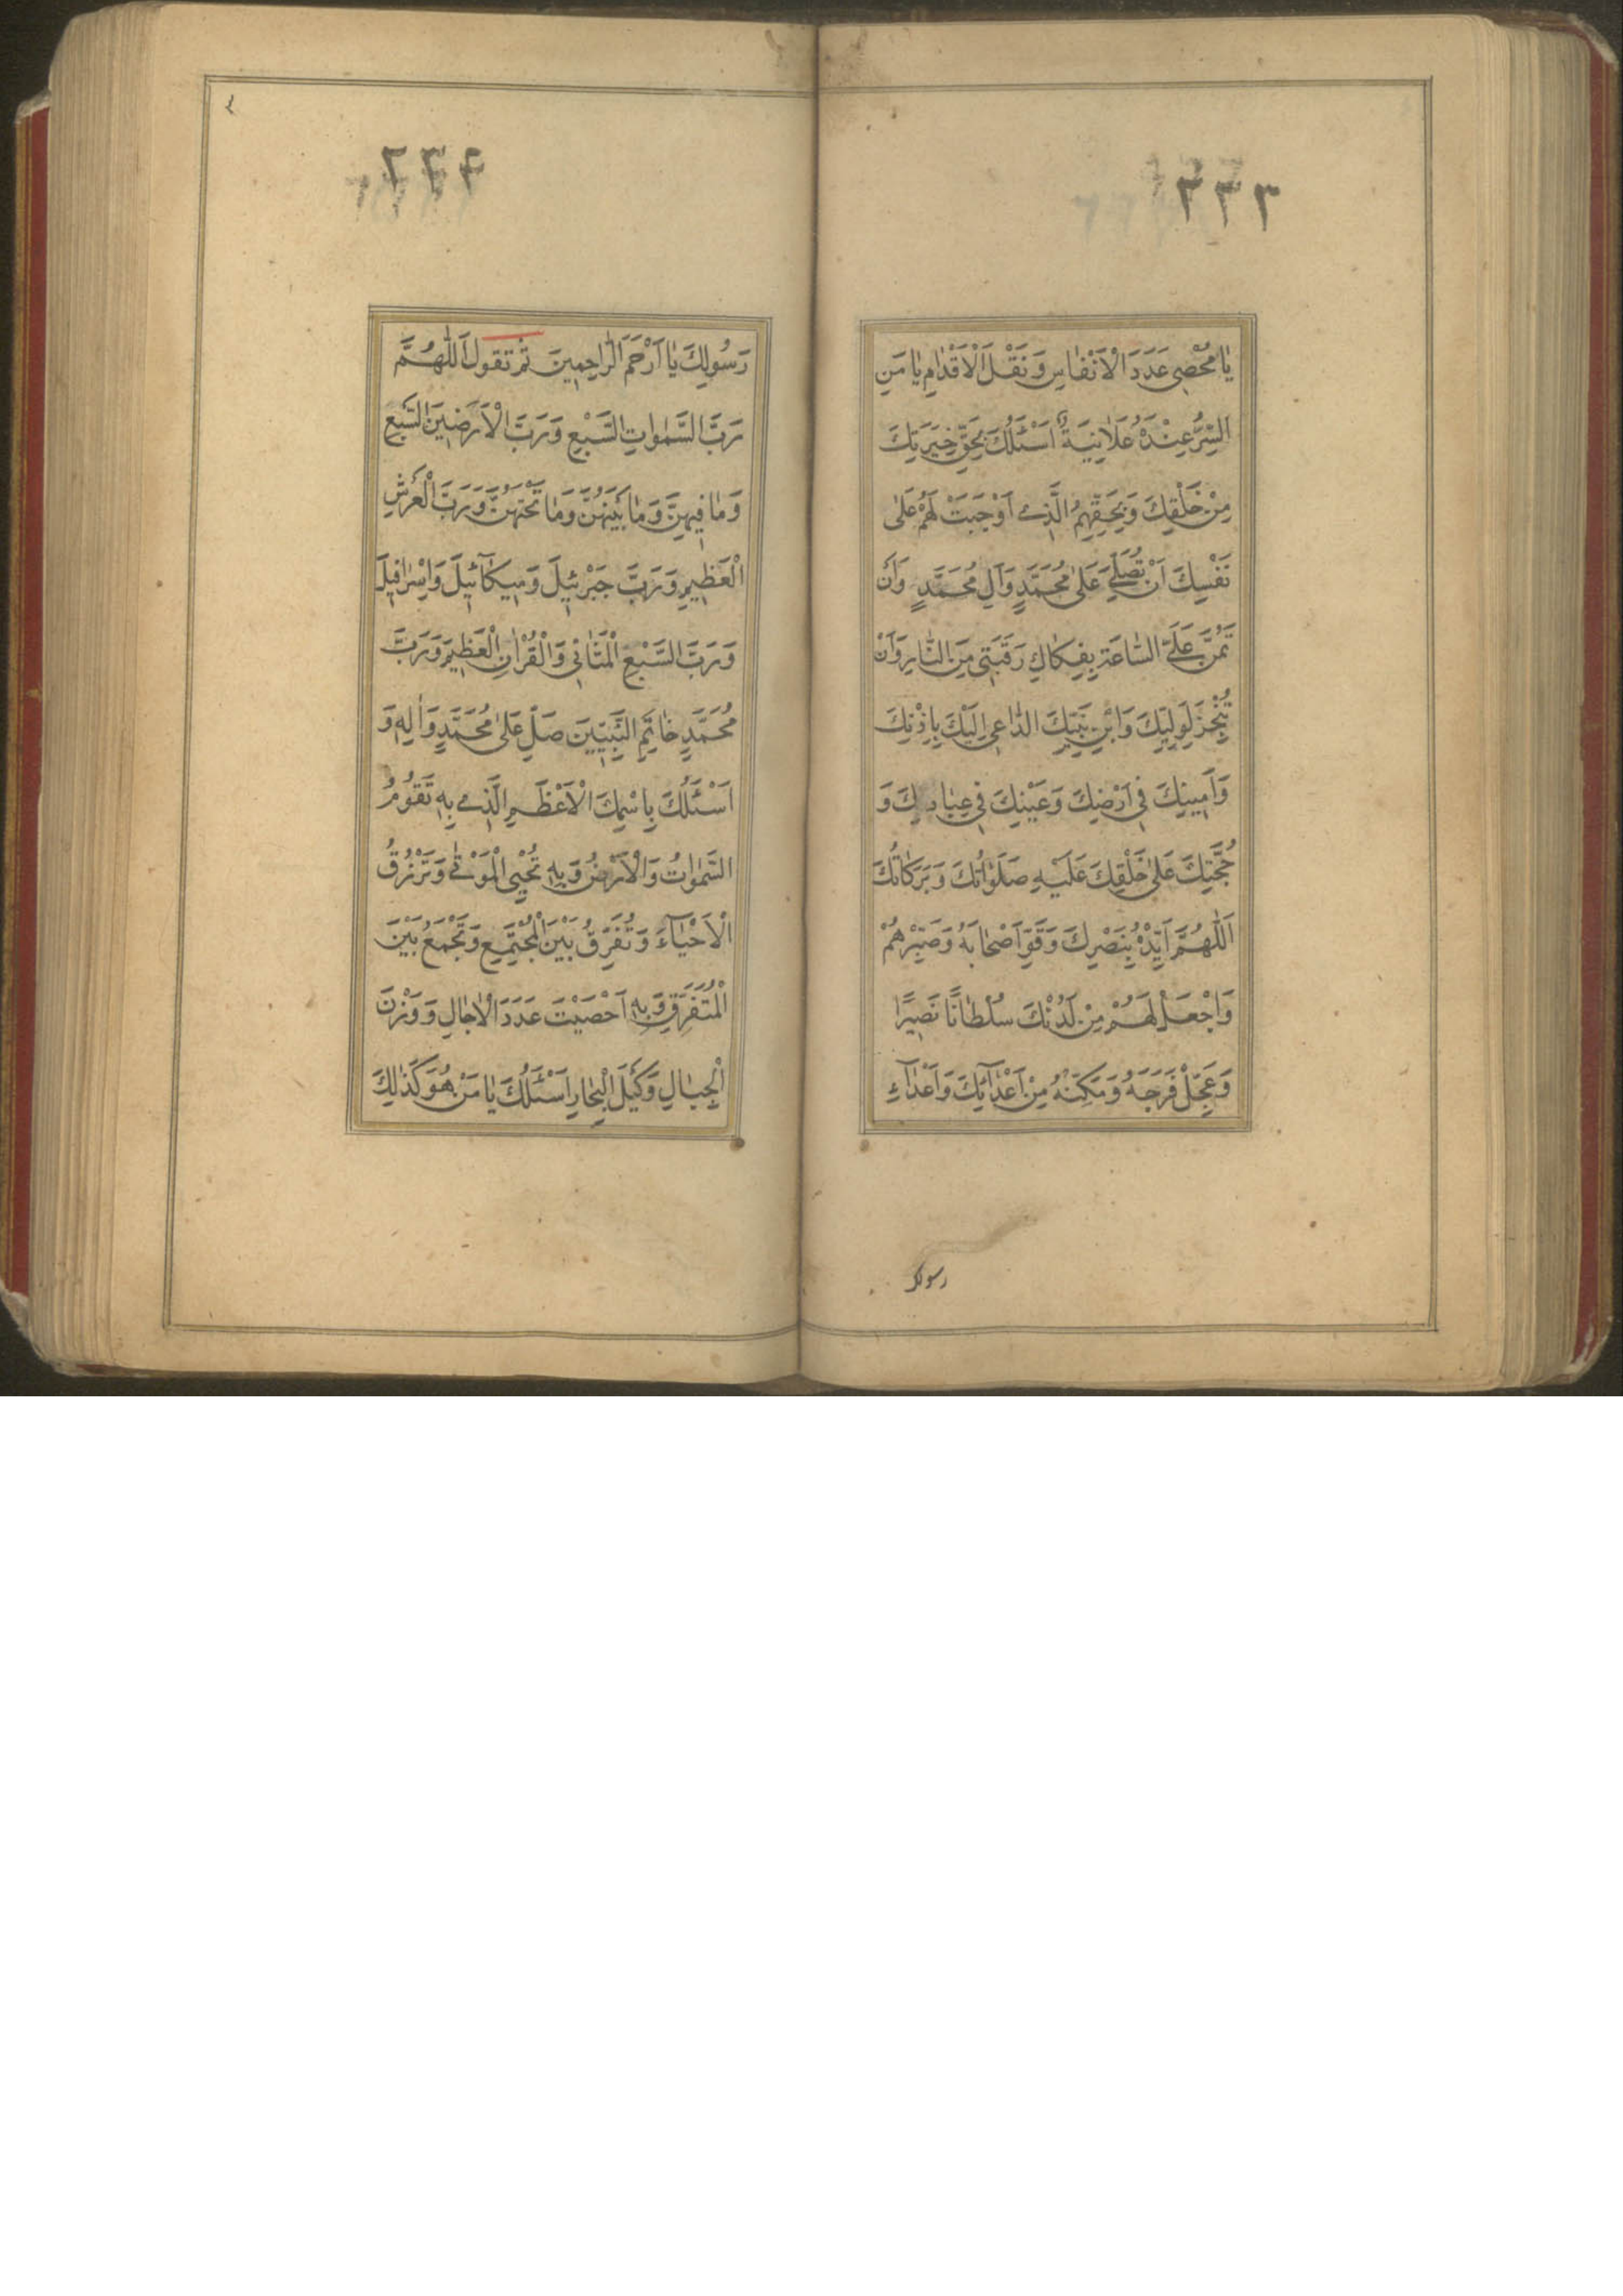 يٰا مُحْصِيَ عَدَدَ الْاَنْفٰاسِ وَ نَقْلَ الْاَقْدٰامِ يٰا مَنِ
السِّرُّ عِنْدَهُ عَلٰانِيَةٌ اَسْئَلُكَ بِحَقِّ خِيَرَتِكَ
مِنْ خَلْقِكَ وَ بِحَقِّهِمُ الَّذِي اَوْجَبْتَ لَهُمْ عَلىٰ
نَفْسِكَ اَنْ تُصَلِّيَ عَلىٰ مُحَمَّدٍ وَ آلِ مُحَمَّدٍ وَ اَنْ
تَمُنَّ عَلَيَّ السّٰاعَةَ بِفِكٰاكِ رَقَبَتِي مِنَ النّٰارِ وَ اَنْ
تُنْجِزَ لِوَلِيِّكَ وَ ابْنِ نَبِيِّكَ الدّٰاعِي اِلَيْكَ بِاِذْنِكَ
وَ اَمِينِكَ فِي اَرْضِكَ وَ عَيْنِكَ فِي عِبٰادِكَ وَ
حُجَّتِكَ عَلىٰ خَلْقِكَ عَلَيْهِ صَلَوٰاتُكَ وَ بَرَكٰاتُكَ
اَللّٰهُمَّ اَيِّدْهُ بِنَصْرِكَ وَ قَوِّ اَصْحٰابَهُ وَ صَبِّرْهُمْ
وَ اجْعَلْ لَهُمْ مِنْ لَدُنْكَ سُلْطٰانًا نَصِيرًا
وَ عَجِّلْ فَرَجَهُ وَ مَكِّنْهُ مِنْ اَعْدٰآئِكَ وَ اَعْدٰآءِ
رسولك
رَسُولِكَ يٰا اَرْحَمَ الرّٰاحِمِينَ ثم تقول اَللّٰهُمَّ
رَبَّ السَّمٰوٰاتِ السَّبْعِ وَ رَبَّ الْاَرَضِينَ السَّبْعِ
وَ مٰا فِيهِنَّ وَ مٰا بَيْنَهُنَّ وَ مٰا تَحْتَهُنَّ وَ رَبَّ الْعَرْشِ
الْعَظِيمِ وَ رَبَّ جَبْرَئِيلَ وَ مِيكٰآئِيلَ وَ اِسْرٰافِيلَ
وَ رَبَّ السَّبْعِ الْمَثٰانِي وَ الْقُرْاٰنِ الْعَظِيمِ وَ رَبَّ
مُحَمَّدٍ خٰاتَمِ النَّبِيِّينَ صَلِّ عَلىٰ مُحَمَّدٍ وَ اٰلِهِ وَ
اَسْئَلُكَ بِاسْمِكَ الْاَعْظَمِ الَّذِي بِهِ تَقُومُ
السَّمٰوٰاتُ وَ الْاَرْضُ وَ بِهِ تُحْيِي الْمَوْتٰى وَ تَرْزُقُ
الْاَحْيٰآءَ وَ تُفَرِّقُ بَيْنَ الْمُجْتَمِعِ وَ تَجْمَعُ بَيْنَ
الْمُتَفَرِّقِ وَ بِهِ اَحْصَيْتَ عَدَدَ الْاٰجٰالِ وَ وَزْنَ
الْجِبٰالِ وَ كَيْلَ الْبِحٰارِ اَسْئَلُكَ يٰا مَنْ هُوَ كَذٰلِكَ